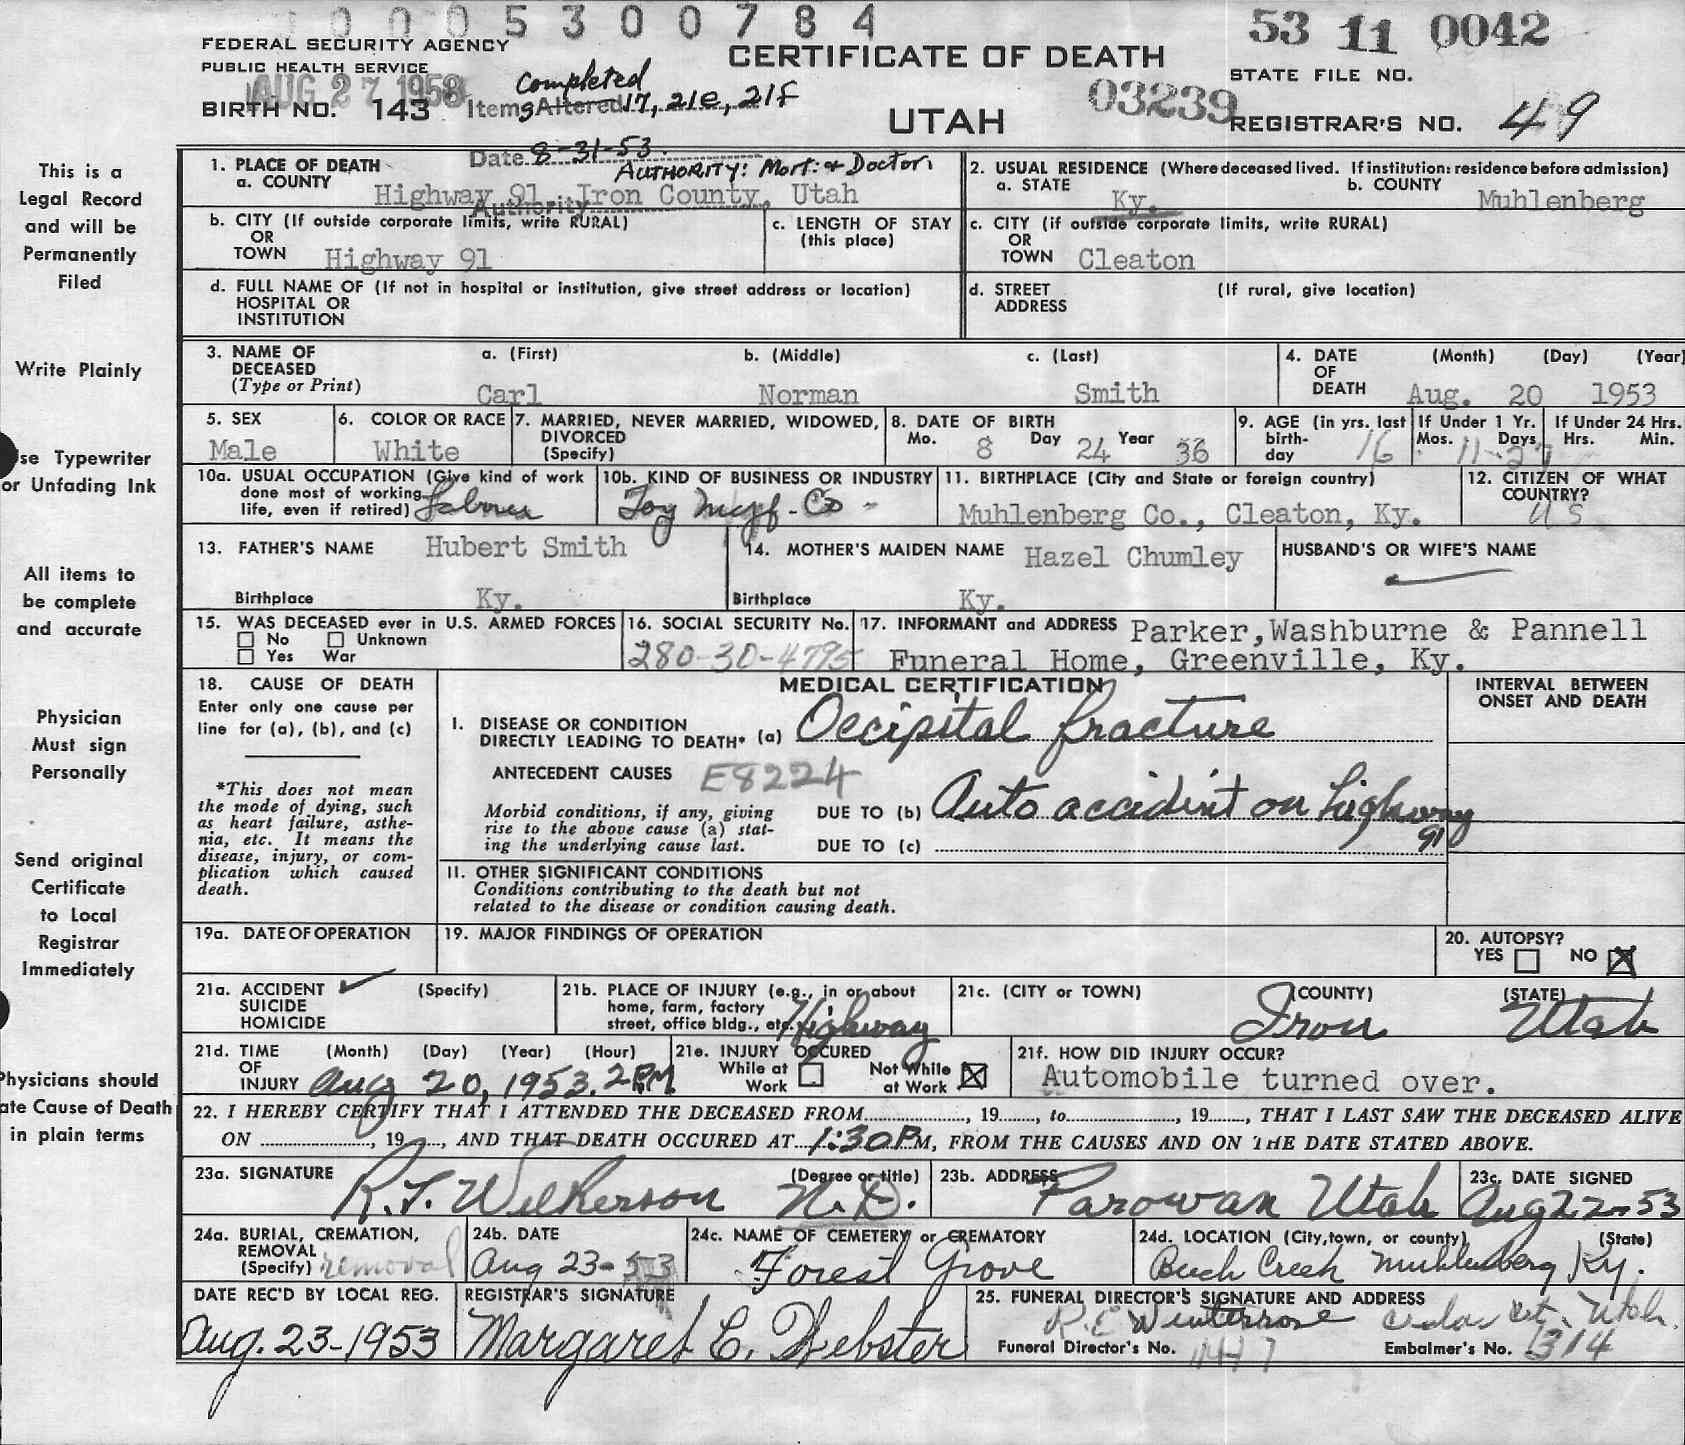 0 0 0 5 3 0 0 7 8 4
53 11 0042
FEDERAL SECURITY AGENCY
PUBLIC HEALTH SERVICE
CERTIFICATE OF DEATH
STATE FILE NO.
AUG 27 1953
completed
BIRTH NO. 143
Items Altered 17, 21e, 21f
03239
UTAH
REGISTRAR'S NO. 49
Date 8-31-53
AUTHORITY: Mort. & Doctor
Authority
1. PLACE OF DEATH
a. COUNTY Highway 91, Iron County, Utah
2. USUAL RESIDENCE (Where deceased lived. If institution: residence before admission)
a. STATE Ky. b. COUNTY Muhlenberg
b. CITY (If outside corporate limits, write RURAL)
OR
TOWN Highway 91
c. LENGTH OF STAY
(this place)
c. CITY (if outside corporate limits, write RURAL)
OR
TOWN Cleaton
d. FULL NAME OF (If not in hospital or institution, give street address or location)
HOSPITAL OR
INSTITUTION
d. STREET (If rural, give location)
ADDRESS
3. NAME OF DECEASED
(Type or Print)
a. (First) b. (Middle) c. (Last)
Carl Norman Smith
4. DATE OF DEATH (Month) (Day) (Year)
Aug. 20 1953
5. SEX
Male
6. COLOR OR RACE
White
7. MARRIED, NEVER MARRIED, WIDOWED,
DIVORCED
(Specify)
8. DATE OF BIRTH
Mo. 8 Day 24 Year 36
9. AGE (in yrs. last birth-day 16
If Under 1 Yr.
Mos. Days
11-27
If Under 24 Hrs.
Hrs. Min.
10a. USUAL OCCUPATION (Give kind of work
done most of working
life, even if retired) Laborer
10b. KIND OF BUSINESS OR INDUSTRY
Toy Mfgf. Co -
11. BIRTHPLACE (City and State or foreign country)
Muhlenberg Co., Cleaton, Ky.
12. CITIZEN OF WHAT
COUNTRY?
US
13. FATHER'S NAME Hubert Smith
Birthplace Ky.
14. MOTHER'S MAIDEN NAME Hazel Chumley
Birthplace Ky.
HUSBAND'S OR WIFE'S NAME
15. WAS DECEASED ever in U.S. ARMED FORCES
No Unknown
Yes War
16. SOCIAL SECURITY No.
280-30-4795
17. INFORMANT and ADDRESS Parker,Washburne & Pannell
Funeral Home, Greenville, Ky.
18. CAUSE OF DEATH
Enter only one cause per
line for (a), (b), and (c)
*This does not mean
the mode of dying, such
as heart failure, asthe-
nia, etc. It means the
disease, injury, or com-
plication which caused
death.
MEDICAL CERTIFICATION
INTERVAL BETWEEN
ONSET AND DEATH
I. DISEASE OR CONDITION
DIRECTLY LEADING TO DEATH* (a) Occipital fracture
ANTECEDENT CAUSES E8224
Morbid conditions, if any, giving
rise to the above cause (a) stat-
ing the underlying cause last.
DUE TO (b) Auto accident on highway
91
DUE TO (c)
11. OTHER SIGNIFICANT CONDITIONS
Conditions contributing to the death but not
related to the disease or condition causing death.
19a. DATE OF OPERATION
19. MAJOR FINDINGS OF OPERATION
20. AUTOPSY?
YES NO
21a. ACCIDENT (Specify)
SUICIDE
HOMICIDE
21b. PLACE OF INJURY (e.g., in or about
home, farm, factory
street, office bldg., etc. Highway
21c. (CITY or TOWN) (COUNTY) (STATE)
Iron Utah
21d. TIME (Month) (Day) (Year) (Hour)
OF
INJURY Aug 20, 1953. 2PM
21e. INJURY OCCURED
While at
Work
Not While
at Work
21f. HOW DID INJURY OCCUR?
Automobile turned over.
22. I HEREBY CERTIFY THAT I ATTENDED THE DECEASED FROM, 19, to, 19, THAT I LAST SAW THE DECEASED ALIVE
ON, 19, AND THAT DEATH OCCURED AT 1:30 P M, FROM THE CAUSES AND ON THE DATE STATED ABOVE.
23a. SIGNATURE (Degree or title)
R.F. Wilkerson M.D.
23b. ADDRESS
Parowan Utah
23c. DATE SIGNED
Aug 22-53
24a. BURIAL, CREMATION,
REMOVAL
(Specify) removal
24b. DATE
Aug 23-53
24c. NAME OF CEMETERY or CREMATORY
Forest Grove
24d. LOCATION (City,town, or county) (State)
Beech Creek Muhlenberg Ky.
DATE REC'D BY LOCAL REG.
Aug. 23-1953
REGISTRAR'S SIGNATURE
Margaret C. Webster
25. FUNERAL DIRECTOR'S SIGNATURE AND ADDRESS
R.E Winterrose Utah.
Funeral Director's No.
Embalmer's No. 1314
This is a
Legal Record
and will be
Permanently
Filed
Write Plainly
se Typewriter
or Unfading Ink
All items to
be complete
and accurate
Physician
Must sign
Personally
Send original
Certificate
to Local
Registrar
Immediately
Physicians should
ate Cause of Death
in plain terms